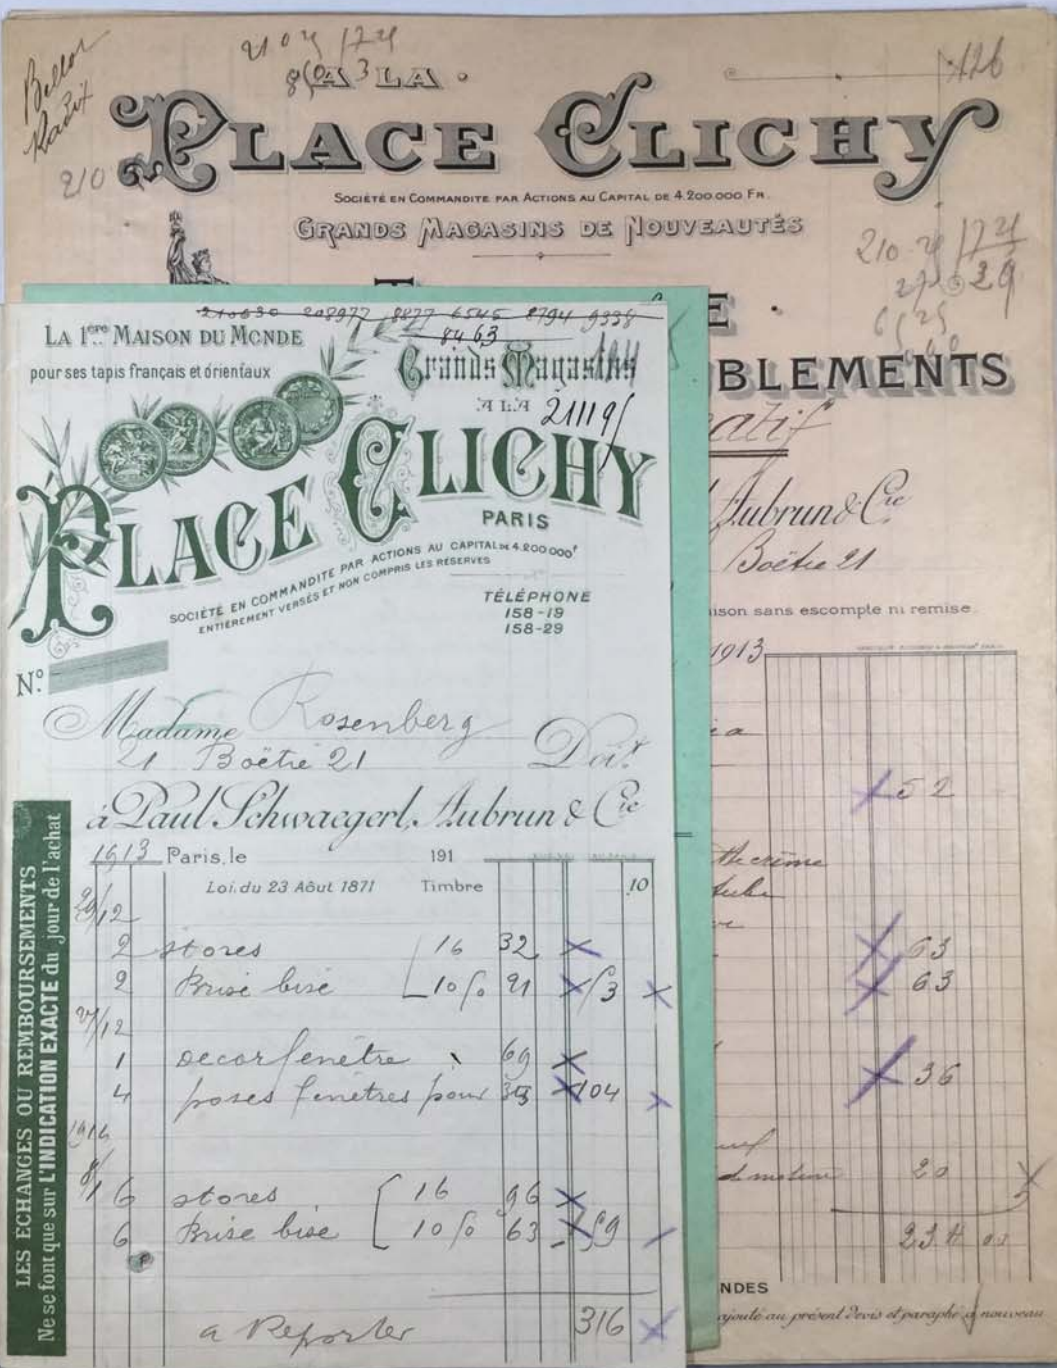 Bellor
210 24 1724
A LA
126
PLACE CLICHY
210
SOCIÉTÉ EN COMMANDITE PAR ACTIONS AU CAPITAL DE 4.200.000 FR.
GRANDS MAGASINS DE NOUVEAUTÉS
E
BLEMENTS
Aubrun & Cie
Boëtie 21
ison sans escompte ni remise
1913
52
crème
63
63
36
20
NDES
ajouté au présent Devis et paraphé à nouveau
210630 208977 8827 6545 8794 9338
8463
LA 1ère MAISON DU MONDE
pour ses tapis français et orientaux
Grands Magasins
A LA
21119
PLACE CLICHY
PARIS
SOCIÉTÉ EN COMMANDITE PAR ACTIONS AU CAPITAL DE 4.200.000f
ENTIÈREMENT VERSÉS ET NON COMPRIS LES RÉSERVES
TÉLÉPHONE
158-19
158-29
No.
Madame Rosenberg
21 Boëtie 21 Doit
à Paul Schwaegerl, Aubrun & Cie
1913 Paris, le 191
Loi du 23 Aôut 1871 Timbre 10
29/12
2 stores 16 32
2 Brise bise 10/6 21 53
1 decor fenêtre 69
4 poses fenêtres pour 35 104
1914
8/1 6 stores 16 96
6 Brise bise 10/6 63 159
a Reporter 316
LES ÉCHANGES OU REMBOURSEMENTS
Ne se font que sur L'INDICATION EXACTE du jour de l'achat